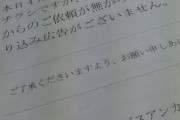 本日の
チラシですが、
からのご依頼が無か
り込み広告がございません。
ご了承くださいますよう、お願い申しあげ
スアンカ